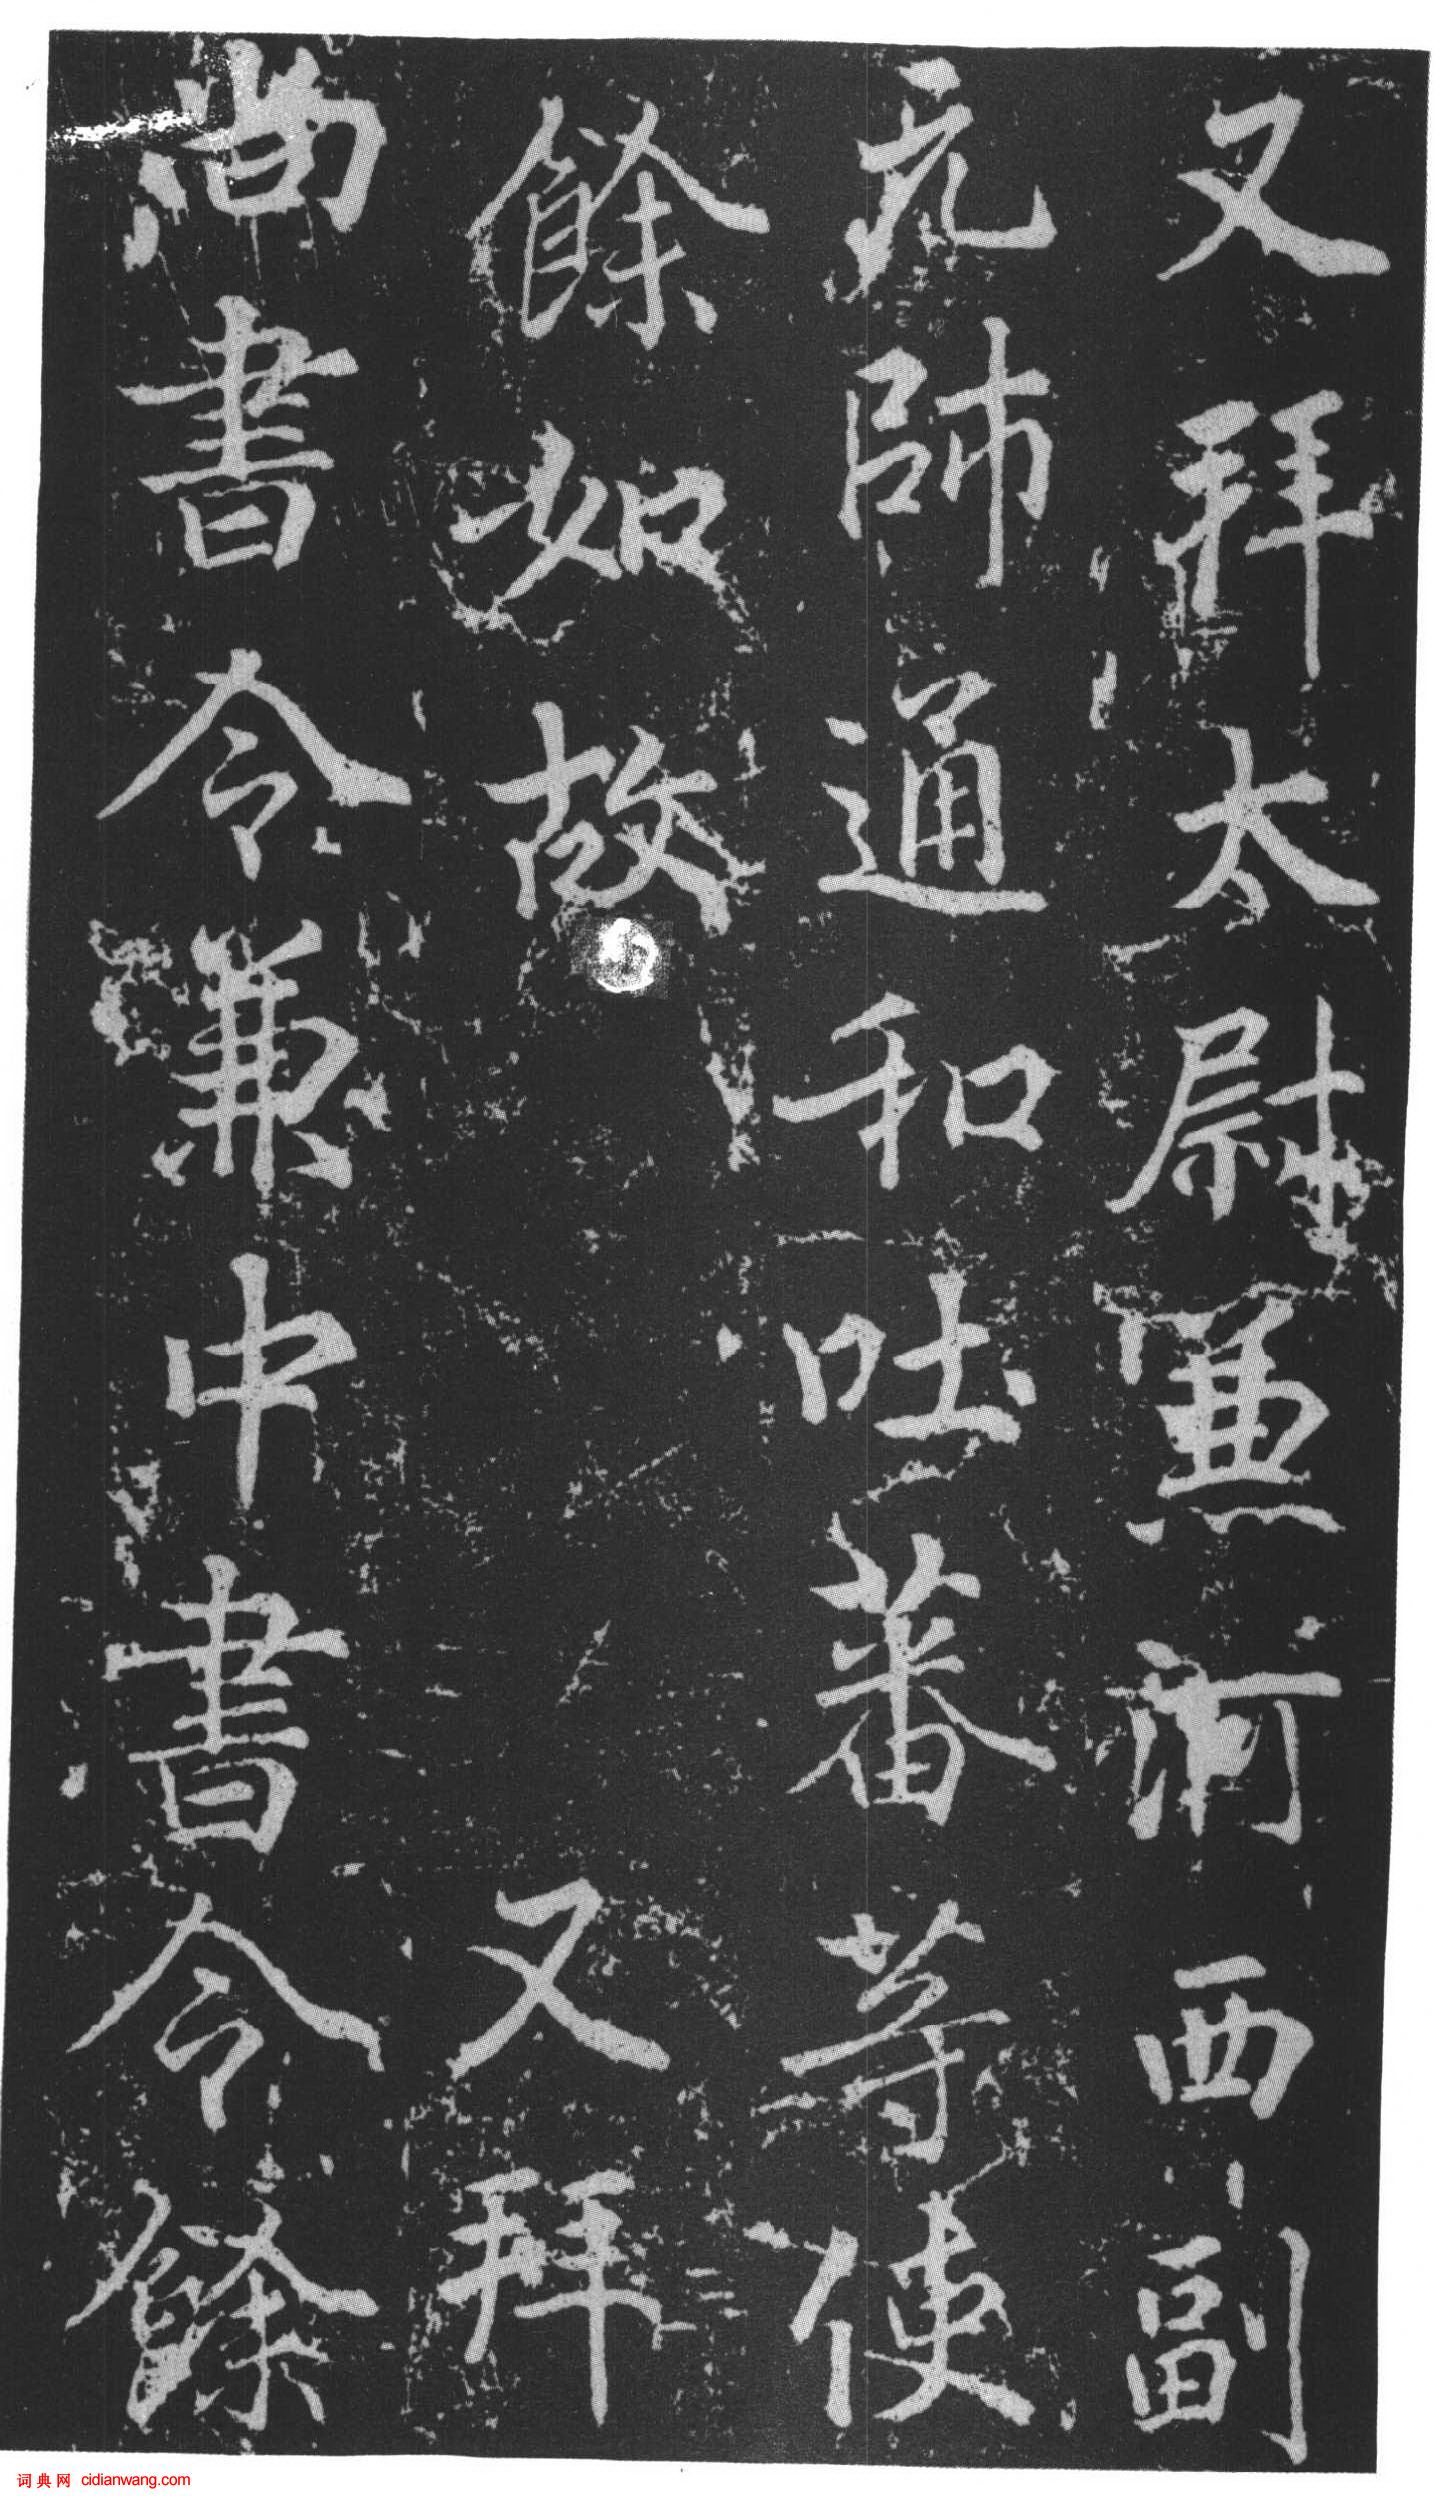 又拜太尉兼河西副
元帥通和吐蕃等使
餘如故　又拜
尚書令兼中書令餘
词典网 cidianwang.com